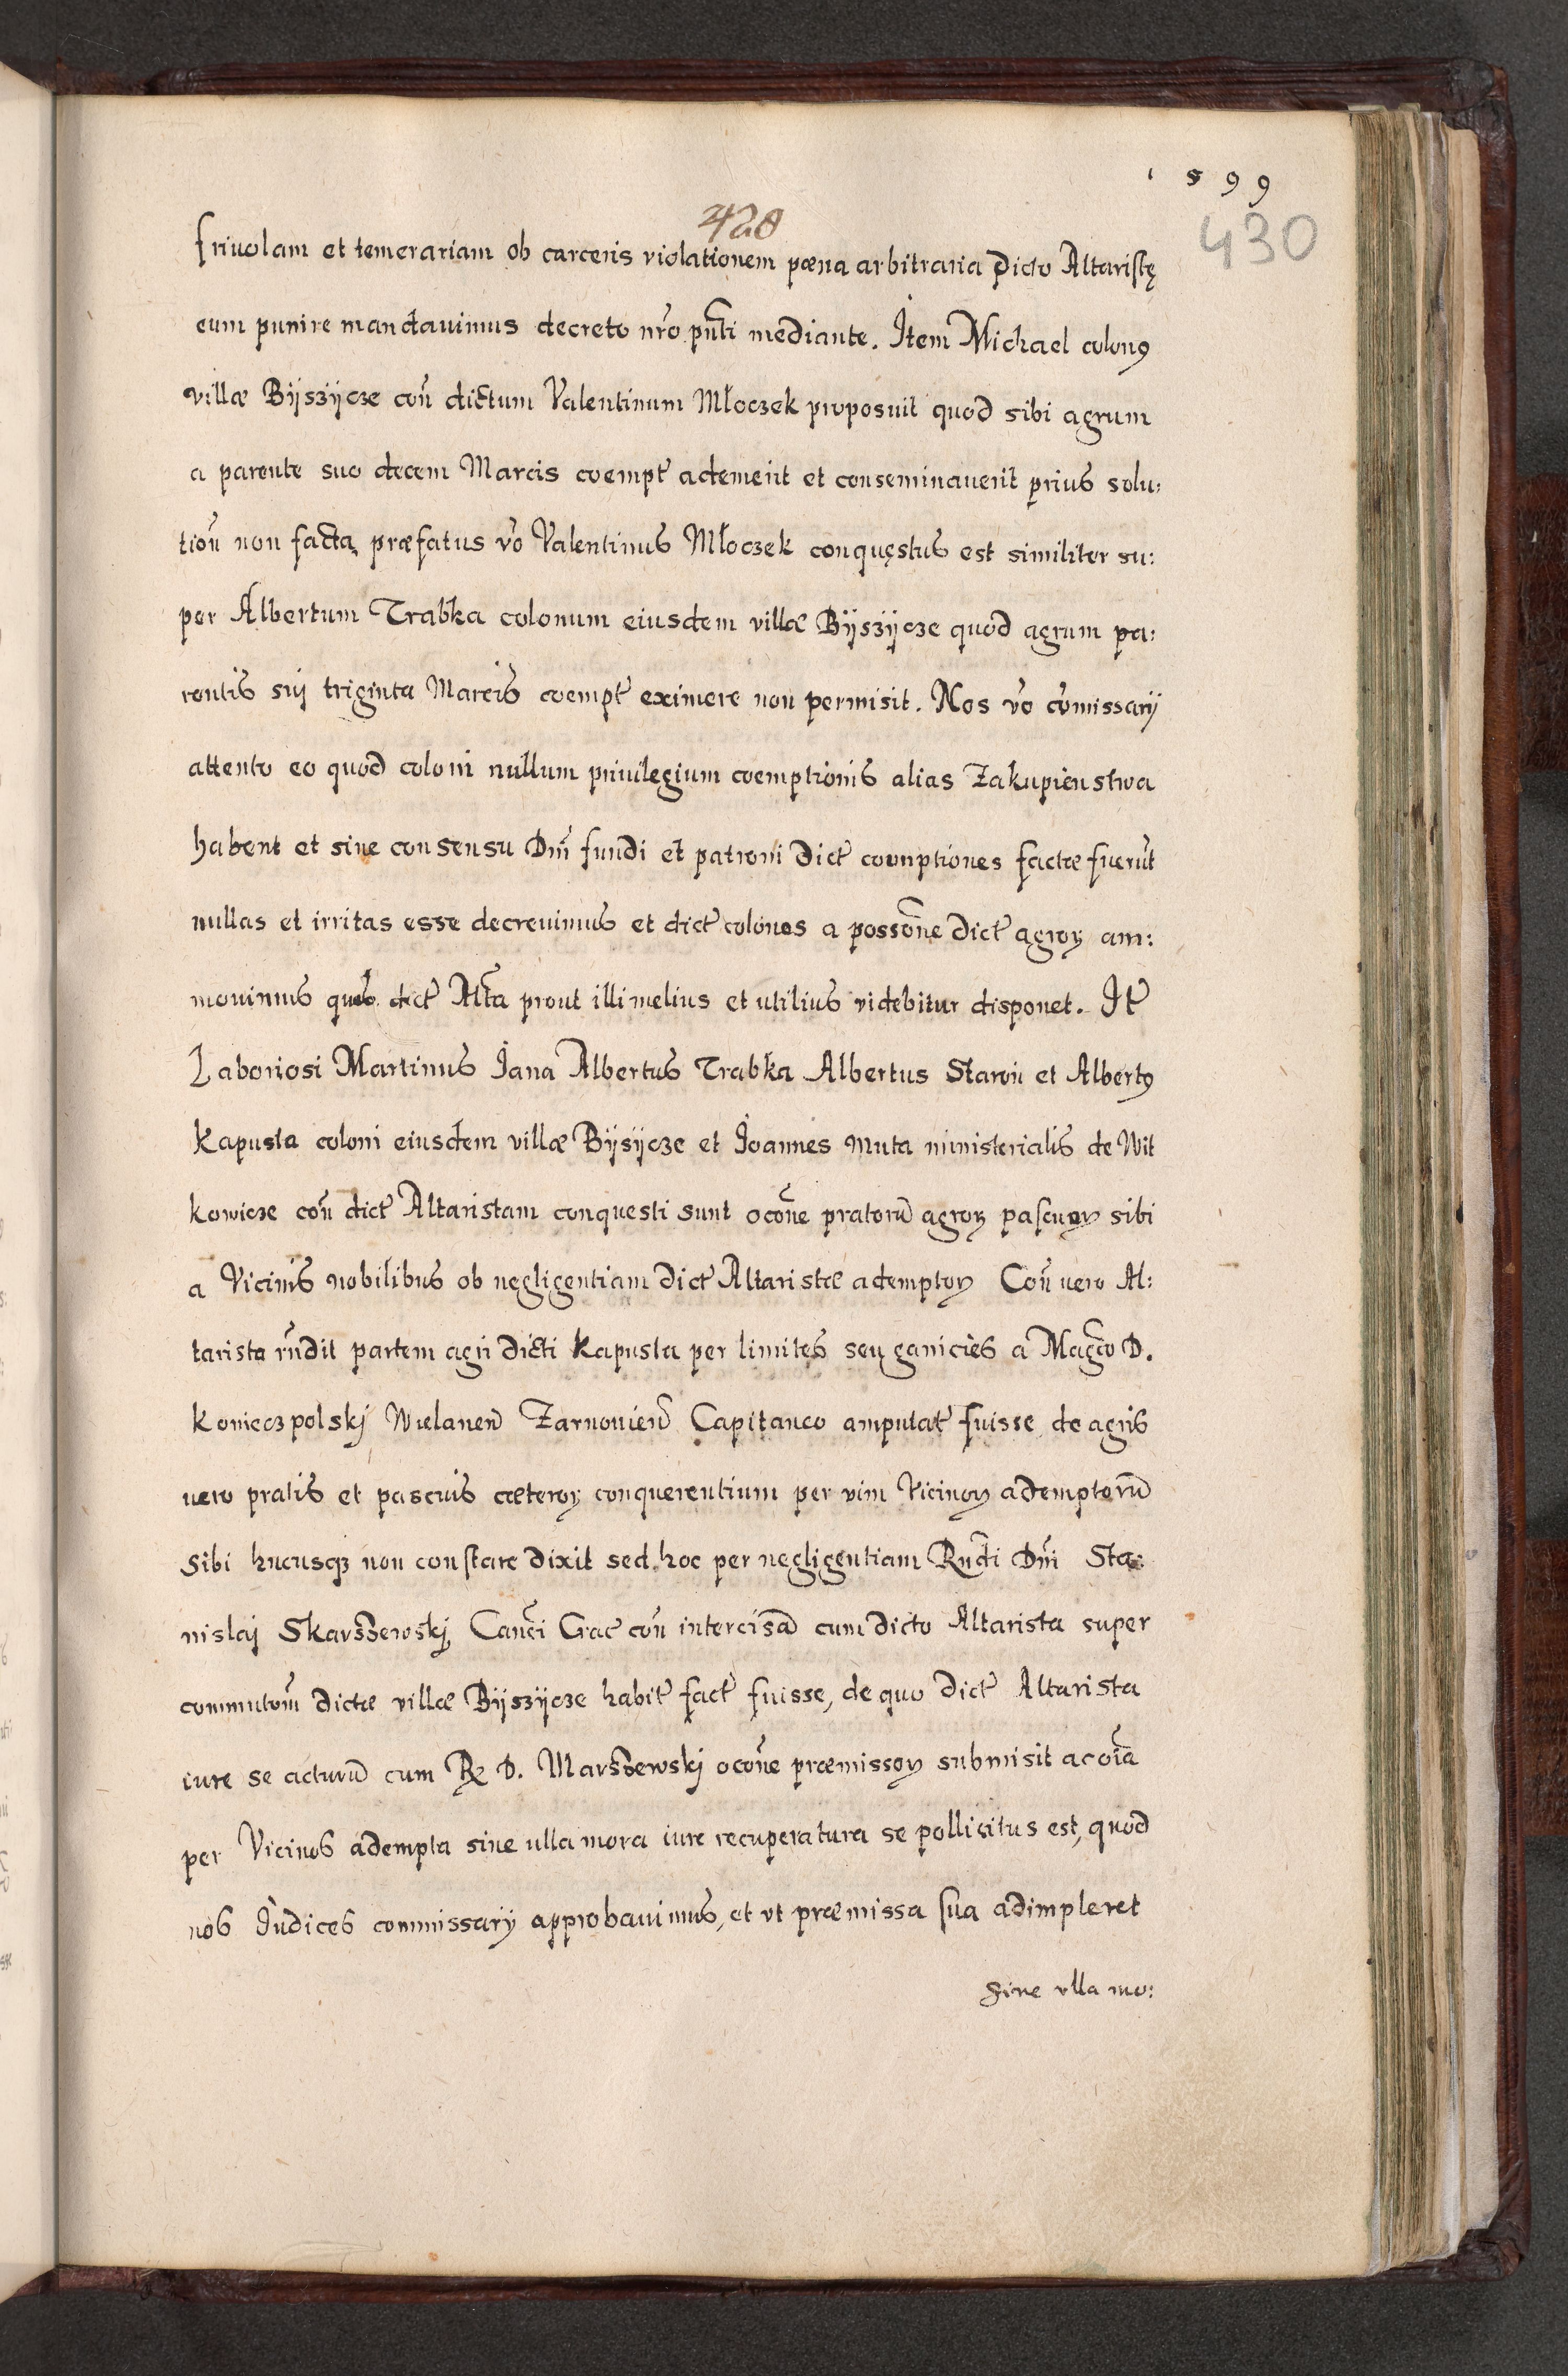 1 5 9 9
430
428
friuolam et temerariam ob carceris violationem pœna arbitraria dicto Altaristę
eum punire mandauimus decreto nr̃o pñti mediante. Item Michael colonꝰ
villæ Bÿszÿcze coñ dictum Valentinum Młoczek proposuit quod sibi agrum
a parente suo decem Marcis coempt̃ ademerit et conseminauerit prius solu:
tioñ non facta, præfatus v̆o Valentinus Młoczek conquęstus est similiter su:
per Albertum Trabka colonum eiusdem villæ Bÿszÿcze quod agrum pa:
rentis sui triginta Marcis coempt̃ eximere non permisit. Nos vo cõmissarÿ
attento eo quod coloni nullum priuilegium coemptionis alias Zakupienstwa
habent et sine consensu Dnĩ fundi et patroni dict̃ coemptiones factæ fuerũt
nullas et irritas esse decreuimus et dict̃ colonos a possoñe dict̃ agroꝝ am:
mouimus quos dict̃ Alt̃a prout illi melius et utilius videbitur disponet. It̃
Laboriosi Martinus Jana Albertus Trabka Albertus Staroń et Albertꝰ
Kapusta coloni eiusdem villæ Bÿsÿcze et Joannes Muta ministerialis de Wit
kowicze coñ dict̃ Altaristam conquesti sunt ocoñe pratorũ agroꝝ pascuoꝝ sibi
a Vicinis nobilibus ob negligentiam dict̃ Altaristæ ademptoꝝ Coñ uero Al:
tarista rñdit partem agri dicti Kapusta per limites seu ganicies a Magc̃o D.
Konieczpolskj Wielunen̄ Zarnouien̄ Capitaneo amputat̃ fuisse, de agris
uero pratis et pascuis cæteroꝝ conquerentium per vim Vicinoꝝ ademptorũ
sibi hucusqꝫ non constare dixit sed hoc per negligentiam Rñdi Dñi Sta:
nislaj Skarszewskj, Canc̃i Crac̃ coñ intercisã cum dicto Altarista super
commutoñi dictæ villæ Bÿszÿcze habit̃ fact̃ fuisse, de quo dict̃ Altarista
iure se acturũ cum R. D. Marszewskj ocoñe præmissoꝝ submisit ac oĩa
per Vicinos adempta sine ulla mora iure recuperatura se pollicitus est, quod
nos Judices commissarÿ approbauimus, et vt præmissa sua adimpleret
sine vlla mo: